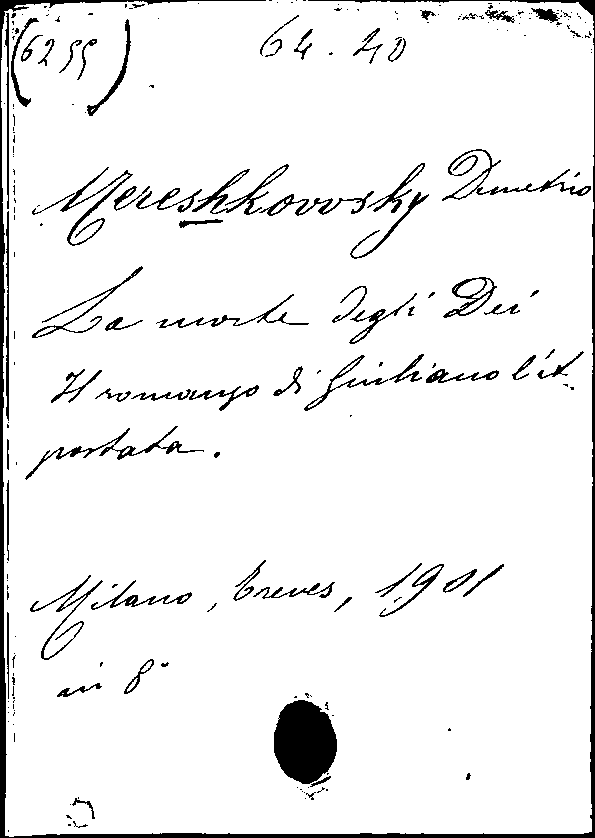 (6299) 64.40
Mereshkovosky Demetrio
La morte degli Dei
Il romanzo di Giuliano l'A-
postata.
Milano, Treves, 1901
in 8°